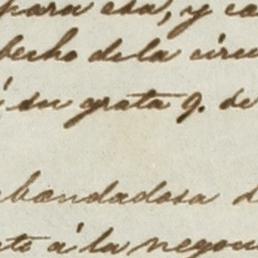 para esa, y ca
pecho de la circu
su grata 9. de
bondadosa
to á la negoci